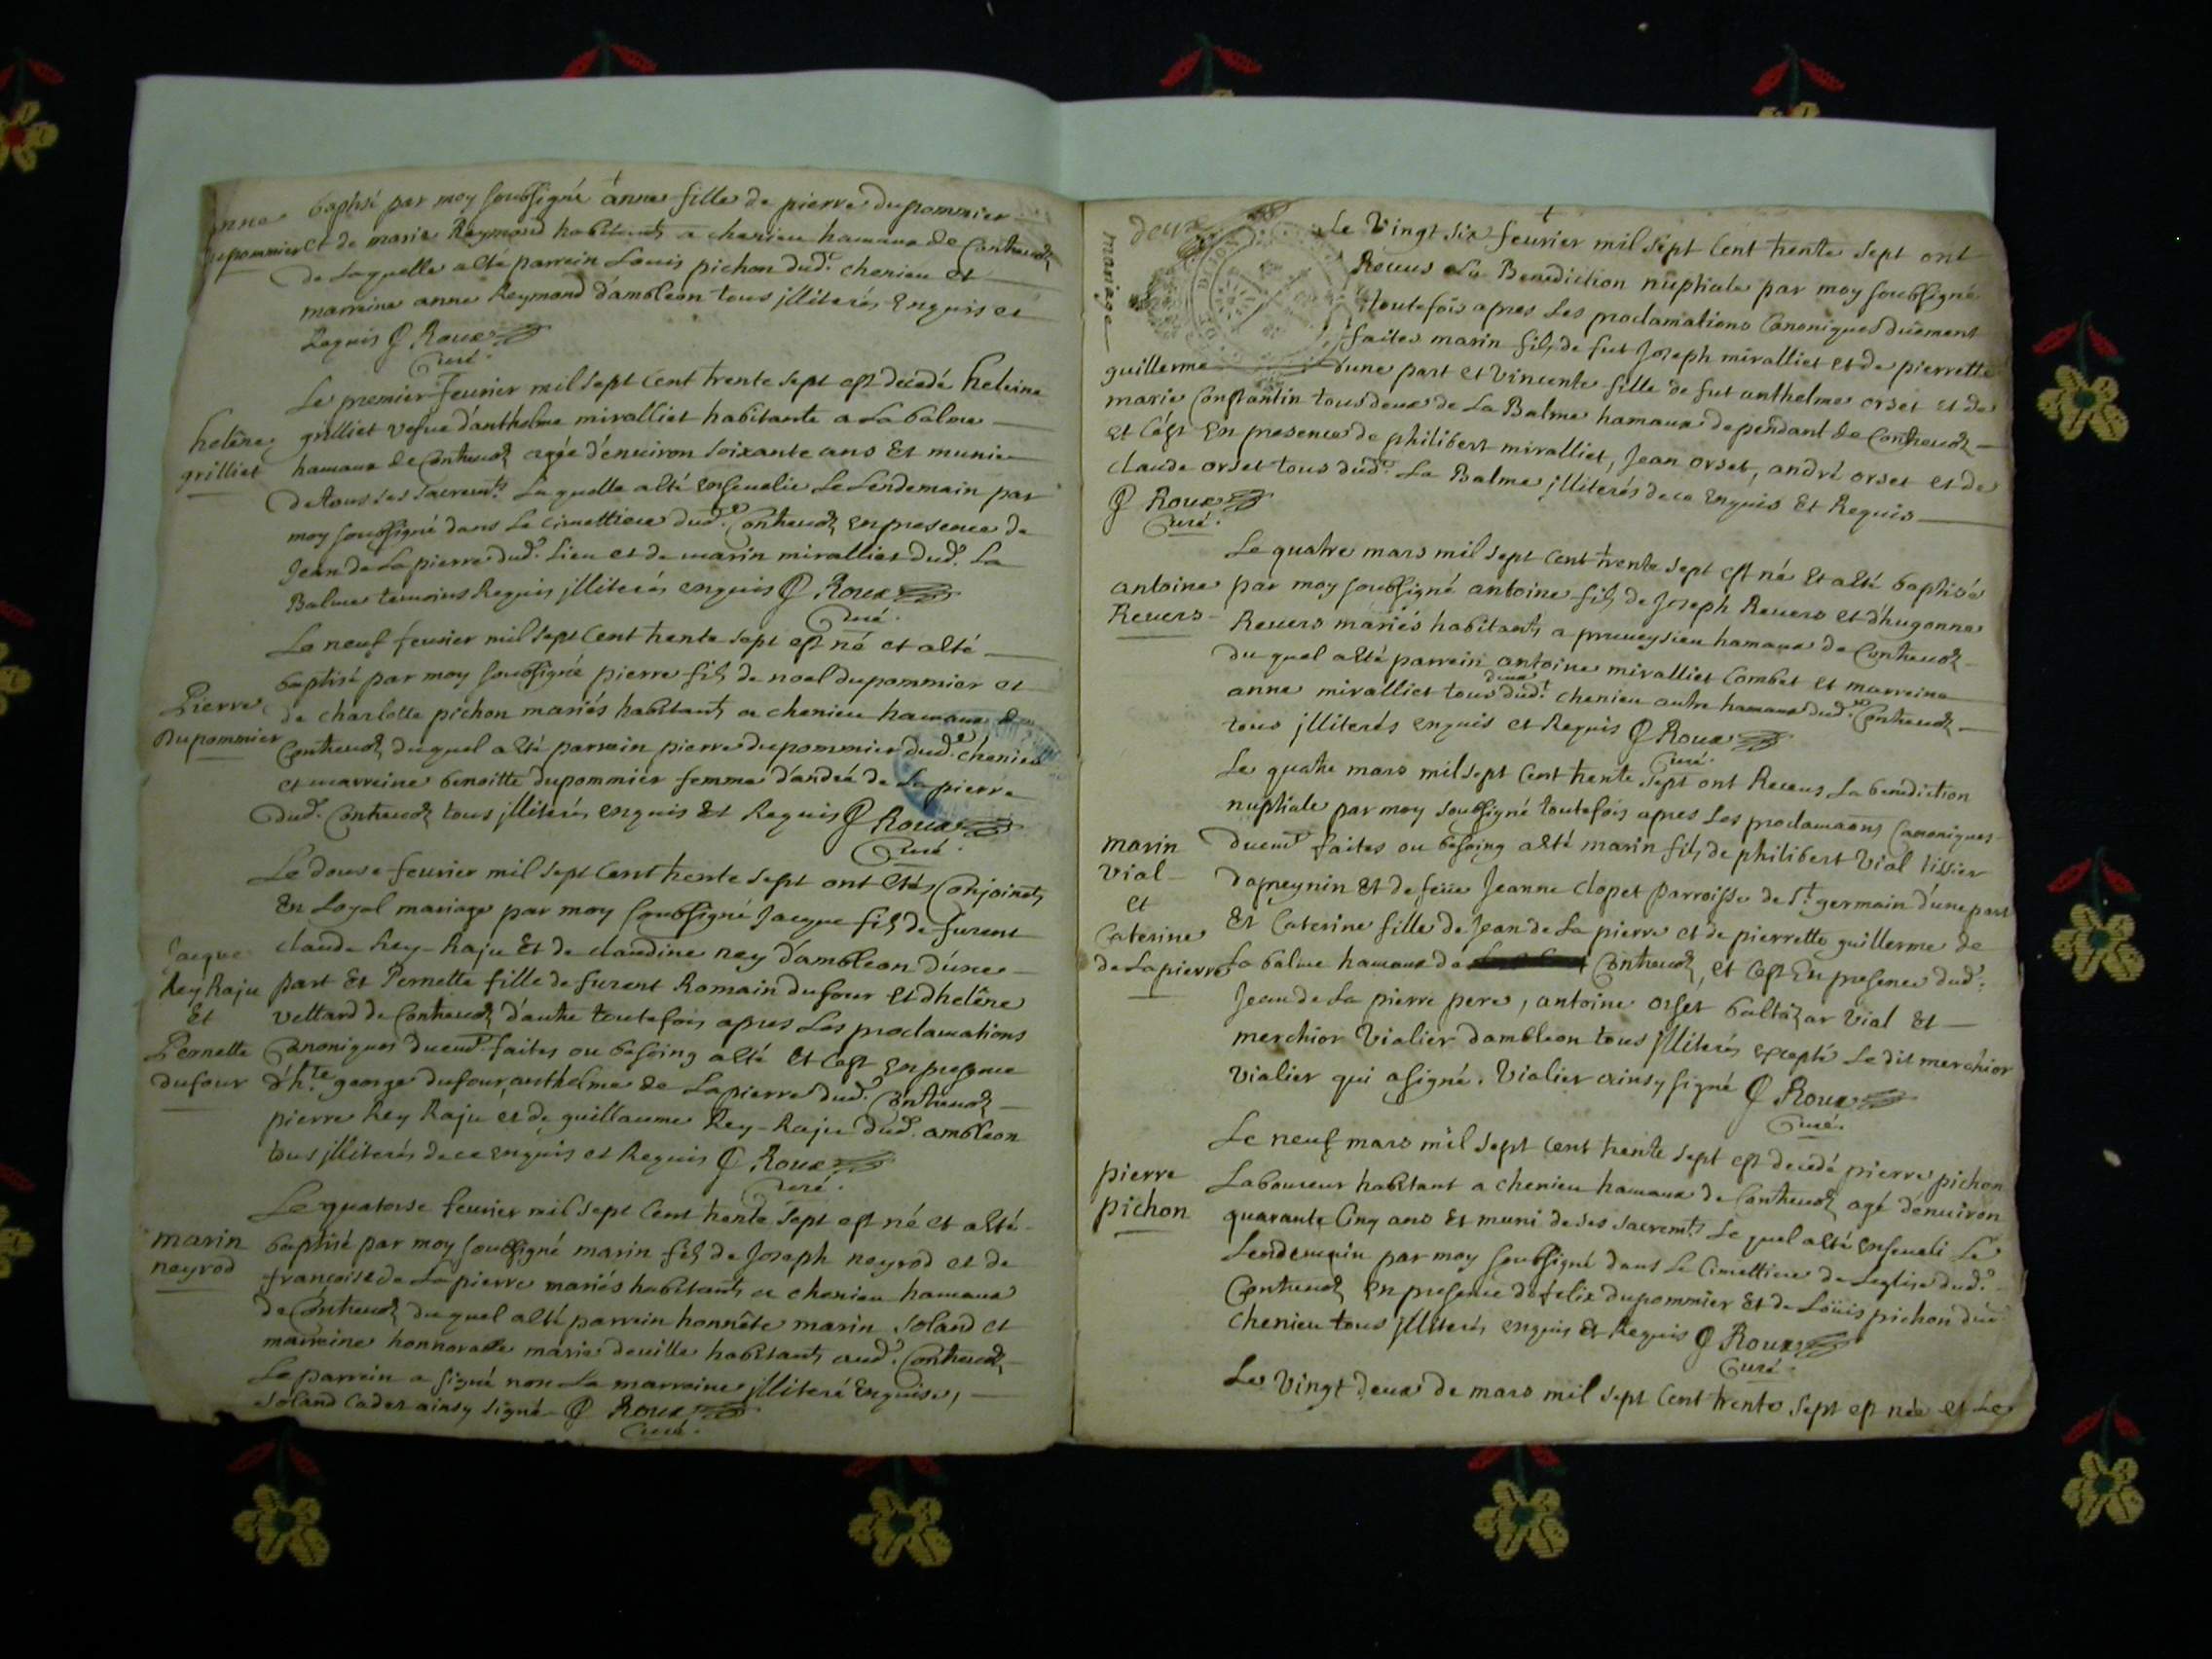 anne
dupommier
baptisé par moy soubsigné anne fille de pierre dupommier
et de marie Reymond habitants a chenieu hamaux de Contreuoz
de Laquelle a été parrein Louis pichon dud.t chenieu et
marreine anne Reymond d'ambleon tous jlliterés enquis et
Requis P Roux
Curé.
helêne
grilliet
Le premier feurier mil sept Cent trente sept est décedé heleine
grilliet vefue d'anthelme miralliet habitante a La balme
hamaux de Contreuoz agée d'enuiron soixante ans Et munie
de tous ses sacrem.ts La quelle a été enseuelie Le Lendemain par
moy soubsigné dans Le Cimettiere dud.t Contreuoz en presence de
Jean de La pierre dud.t Lieu et de marin miralliet dud.t La
Balme temoins Requis jlliterés enquis P Roux
Curé.
Pierre
Dupommier
Le neuf feurier mil sept Cent trente sept est né et a été
baptisé par moy soubsigné pierre fils de noel dupommier et
de charlotte pichon mariés habitants a chenieu hamaux de
Contreuoz duquel a été parrein pierre dupommier dud.t chenieu
et marreine benoitte dupommier femme d'andré de La pierre
dud.t Contreuoz tous jlliterés enquis Et Requis P Roux
Curé.
Jacque
Rey Raju
Et
Pernette
dufour
Le douse feurier mil sept Cent trente sept ont étés Conjoincts
En Loyal mariage par moy soubsigné Jacque fils de furent
claude Rey-Raju Et de claudine ney d'ambleon d'une
part Et Pernette fille de furent Romain dufour et d'helêne
vettard de Contreuoz d'autre toutefois apres Les proclamations
Canoniques duem.t faites ou besoing a été Et C'est en presence
d'h.te george dufour, anthelme de La pierre dud.t Contreuoz
pierre Rey Raju et de guillaume Rey-Raju dud.t ambleon
tous jlliterés de ce enquis et Requis P Roux
Curé.
marin
neyrod
Le quatorse feurier mil sept Cent trente sept est né et a été
baptisé par moy soubsigné marin fils de Joseph neyrod et de
françoise de La pierre mariés habitants a chenieu hamaux
de Contreuoz duquel a été parrein honnête marin Soland et
marreine honnorable marie deuille habitants aud.t Contreuoz
Le parrein a signé non La marreine jlliteré Enquise,
Soland Cadet ainsy signé P Roux
Curé.
deux
mariage
guillerme
Le Vingt six feurier mil sept Cent trente sept ont
Receus La Benediction nuptiale par moy soubsigné
toutefois apres Les proclamations Canoniques duëment
faites marin fils de fut Joseph miralliet et de pierrette
d'une part et Vincente fille de fut anthelme orset et de
marie Constantin tous deux de La Balme hamaux dependant de Contreuoz
et C'est En presence de philibert miralliet, Jean orset, andré orset et de
claude orset tous dud.t La Balme jlliterés de ce Enquis Et Requis
P Roux
Curé.
antoine
Reuers
Le quatre mars mil sept Cent trente sept est né Et a été baptisé
par moy soubsigné antoine fils de Joseph Reuers et d'hugonne
Reuers mariés habitants a preueysieu hamaux de Contreuoz
du quel a été parrein antoine miralliet Combet et marreine
anne miralliet tous deux dud.t chenieu autre hamaux dud.t Contreuoz
tous jlliterés enquis et Requis P Roux
Curé.
marin
vial
et
Caterine
de La pierre
Le quatre mars mil sept Cent trente sept ont Receus La benediction
nuptiale par moy soubsigné toutefois apres Les proclamaons Canoniques
duem.t faites ou besoing a été marin fils de philibert Vial tissier
d'apreynin Et de feüe Jeanne clopet Parroisse de S.t germain d'une part
Et Caterine fille de Jean de La pierre et de pierrette guillerme de
La balme hamaux de Contreuoz, et C'est En presence dud.t
Jean de La pierre pere, antoine orset baltazar Vial Et
merchior Vialier d'ambleon tous jlliterés excepté Le dit merchior
Vialier qui a signé. Vialier ainsy signé P Roux
Curé.
pierre
pichon
Le neuf mars mil sept Cent trente sept est decedé pierre pichon
Laboureur habitant a chenieu hamaux de Contreuoz agé d'enuiron
quarante Cinq ans Et muni de ses sacrem.ts Le quel a été Enseueli Le
Lendemain par moy soubsigné dans Le Cimettiere de L'eglise dud.t
Contreuoz En presence de félix dupommier Et de Loüis pichon dud.t
chenieu tous jlliterés enquis Et Requis P Roux
Curé.
Le Vingt deux de mars mil sept Cent trente sept est née et Le